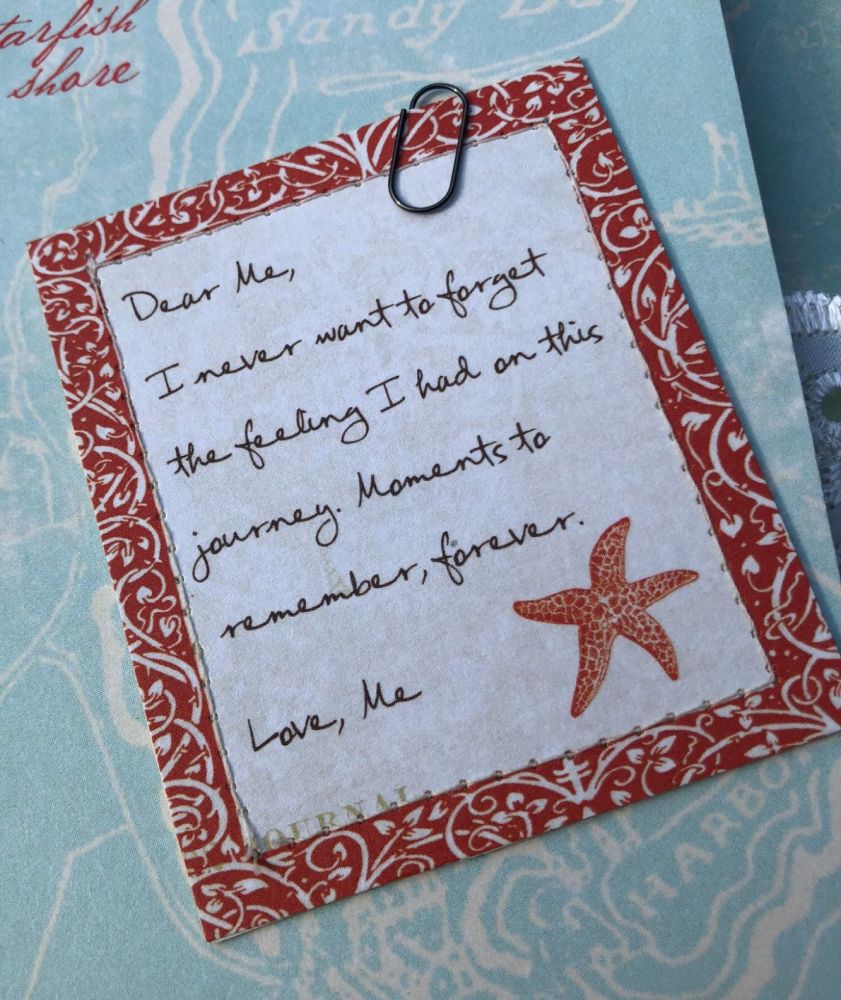 starfish
shore
Sandy
Dear Me,
I never want to forget
the feeling I had on this
journey. Moments to
remember, forever.
Love, Me
JOURNAL
HARBOR